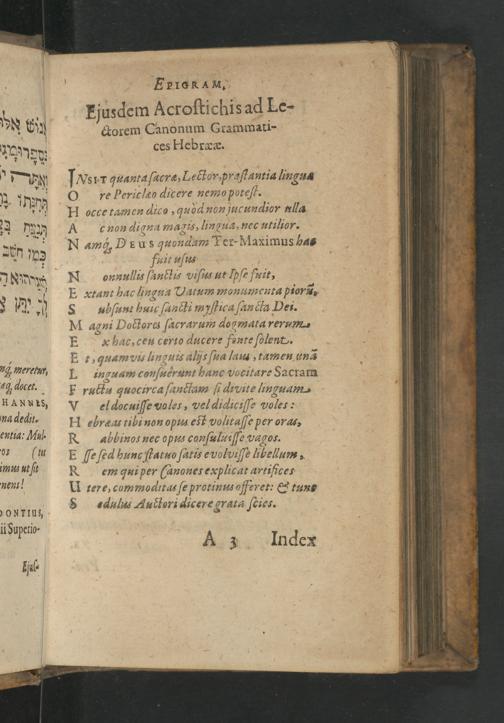 נוש אלו
ונספרומגי
ואתה
תחנתו
תנעת בצ
כמו חשב
mq, meretur,
taq, docet.
HANNES,
na dedit.
entia: Mul-
ros (tu
imus ut sit
nens!
DONTIUS,
ii Superio-
Ejus-
EPIGRAM,
Ejusdem Acrostichis ad Le-
ctorem Canonum Grammati-
ces Hebrææ.
INSIT quanta sacræ, Lector, præstantia linguæ
O re Periclæo dicere nemo potest.
H occe tamen dico, quòd non jucundior ulla
A c non digna magis, lingua, nec utilior.
N amq́, DEUS quondam Ter-Maximus hac
fuit usus
N onnullis sanctis visus ut Ipse fuit,
E xtant hac lingua Vatum monumenta piorũ,
S ubsunt huic sancti mystica sancta Dei.
M agni Doctores sacrarum dogmata rerum
E x hac, ceu certo ducere fonte solent.
E t, quamvis linguis alijs sua laus, tamen unã
L inguam consuêrunt hanc vocitare Sacram
F ructu quocirca sanctam si divite linguam
V el docuisse voles, vel didicisse voles:
H ebræas tibi non opus est volitasse per oras,
R abbinos nec opus consuluisse vagos.
E sse sed hunc statuo satis evolvisse libellum,
R em qui per Canones explicat artifices
U tere, commoditas se protinus offeret: & tunc
S edulus Auctori dicere grata scies.
A 3 Index